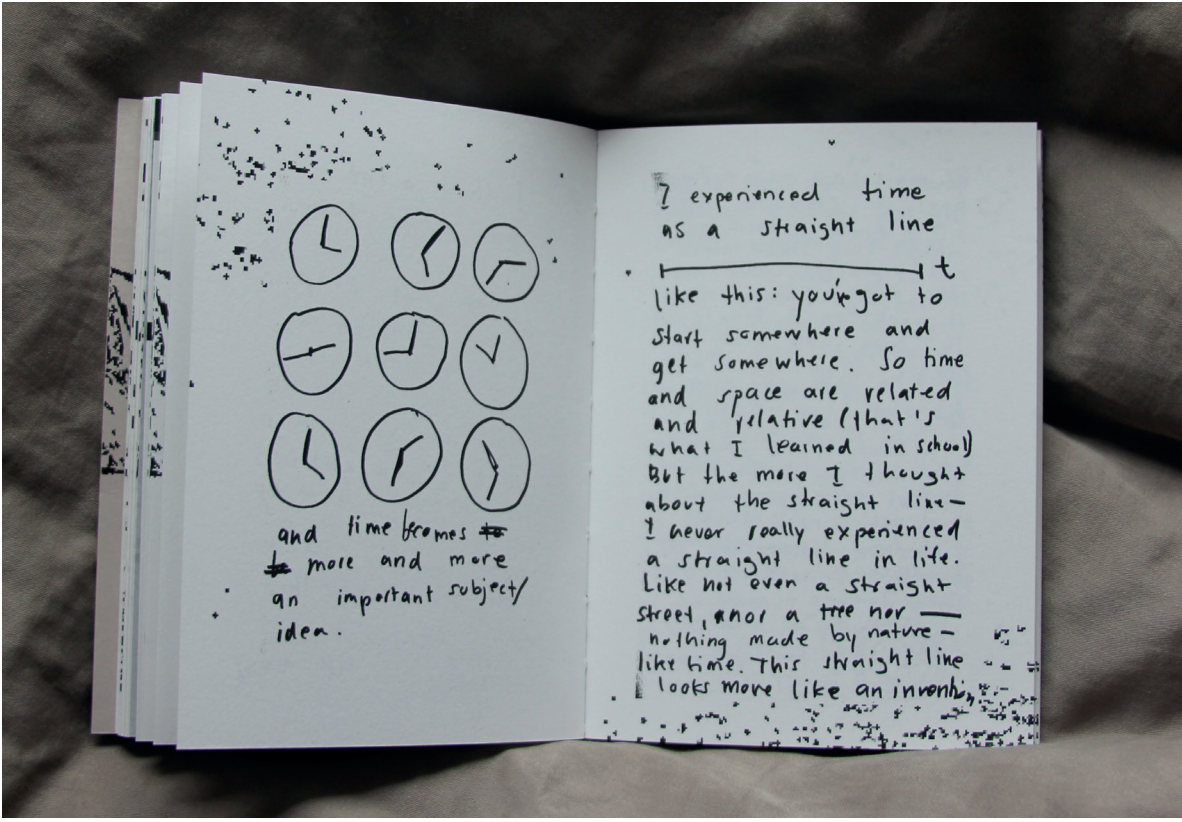 and time becomes
more and more
an important subject/
idea.
I experienced time
as a straight line
t
like this: you've got to
start somewhere and
get somewhere. So time
and space are related
and relative (that's
what I learned in school)
But the more I thought
about the straight line—
I never really experienced
a straight line in life.
Like not even a straight
street, nor a tree nor —
nothing made by nature —
like time. This straight line
looks more like an invention